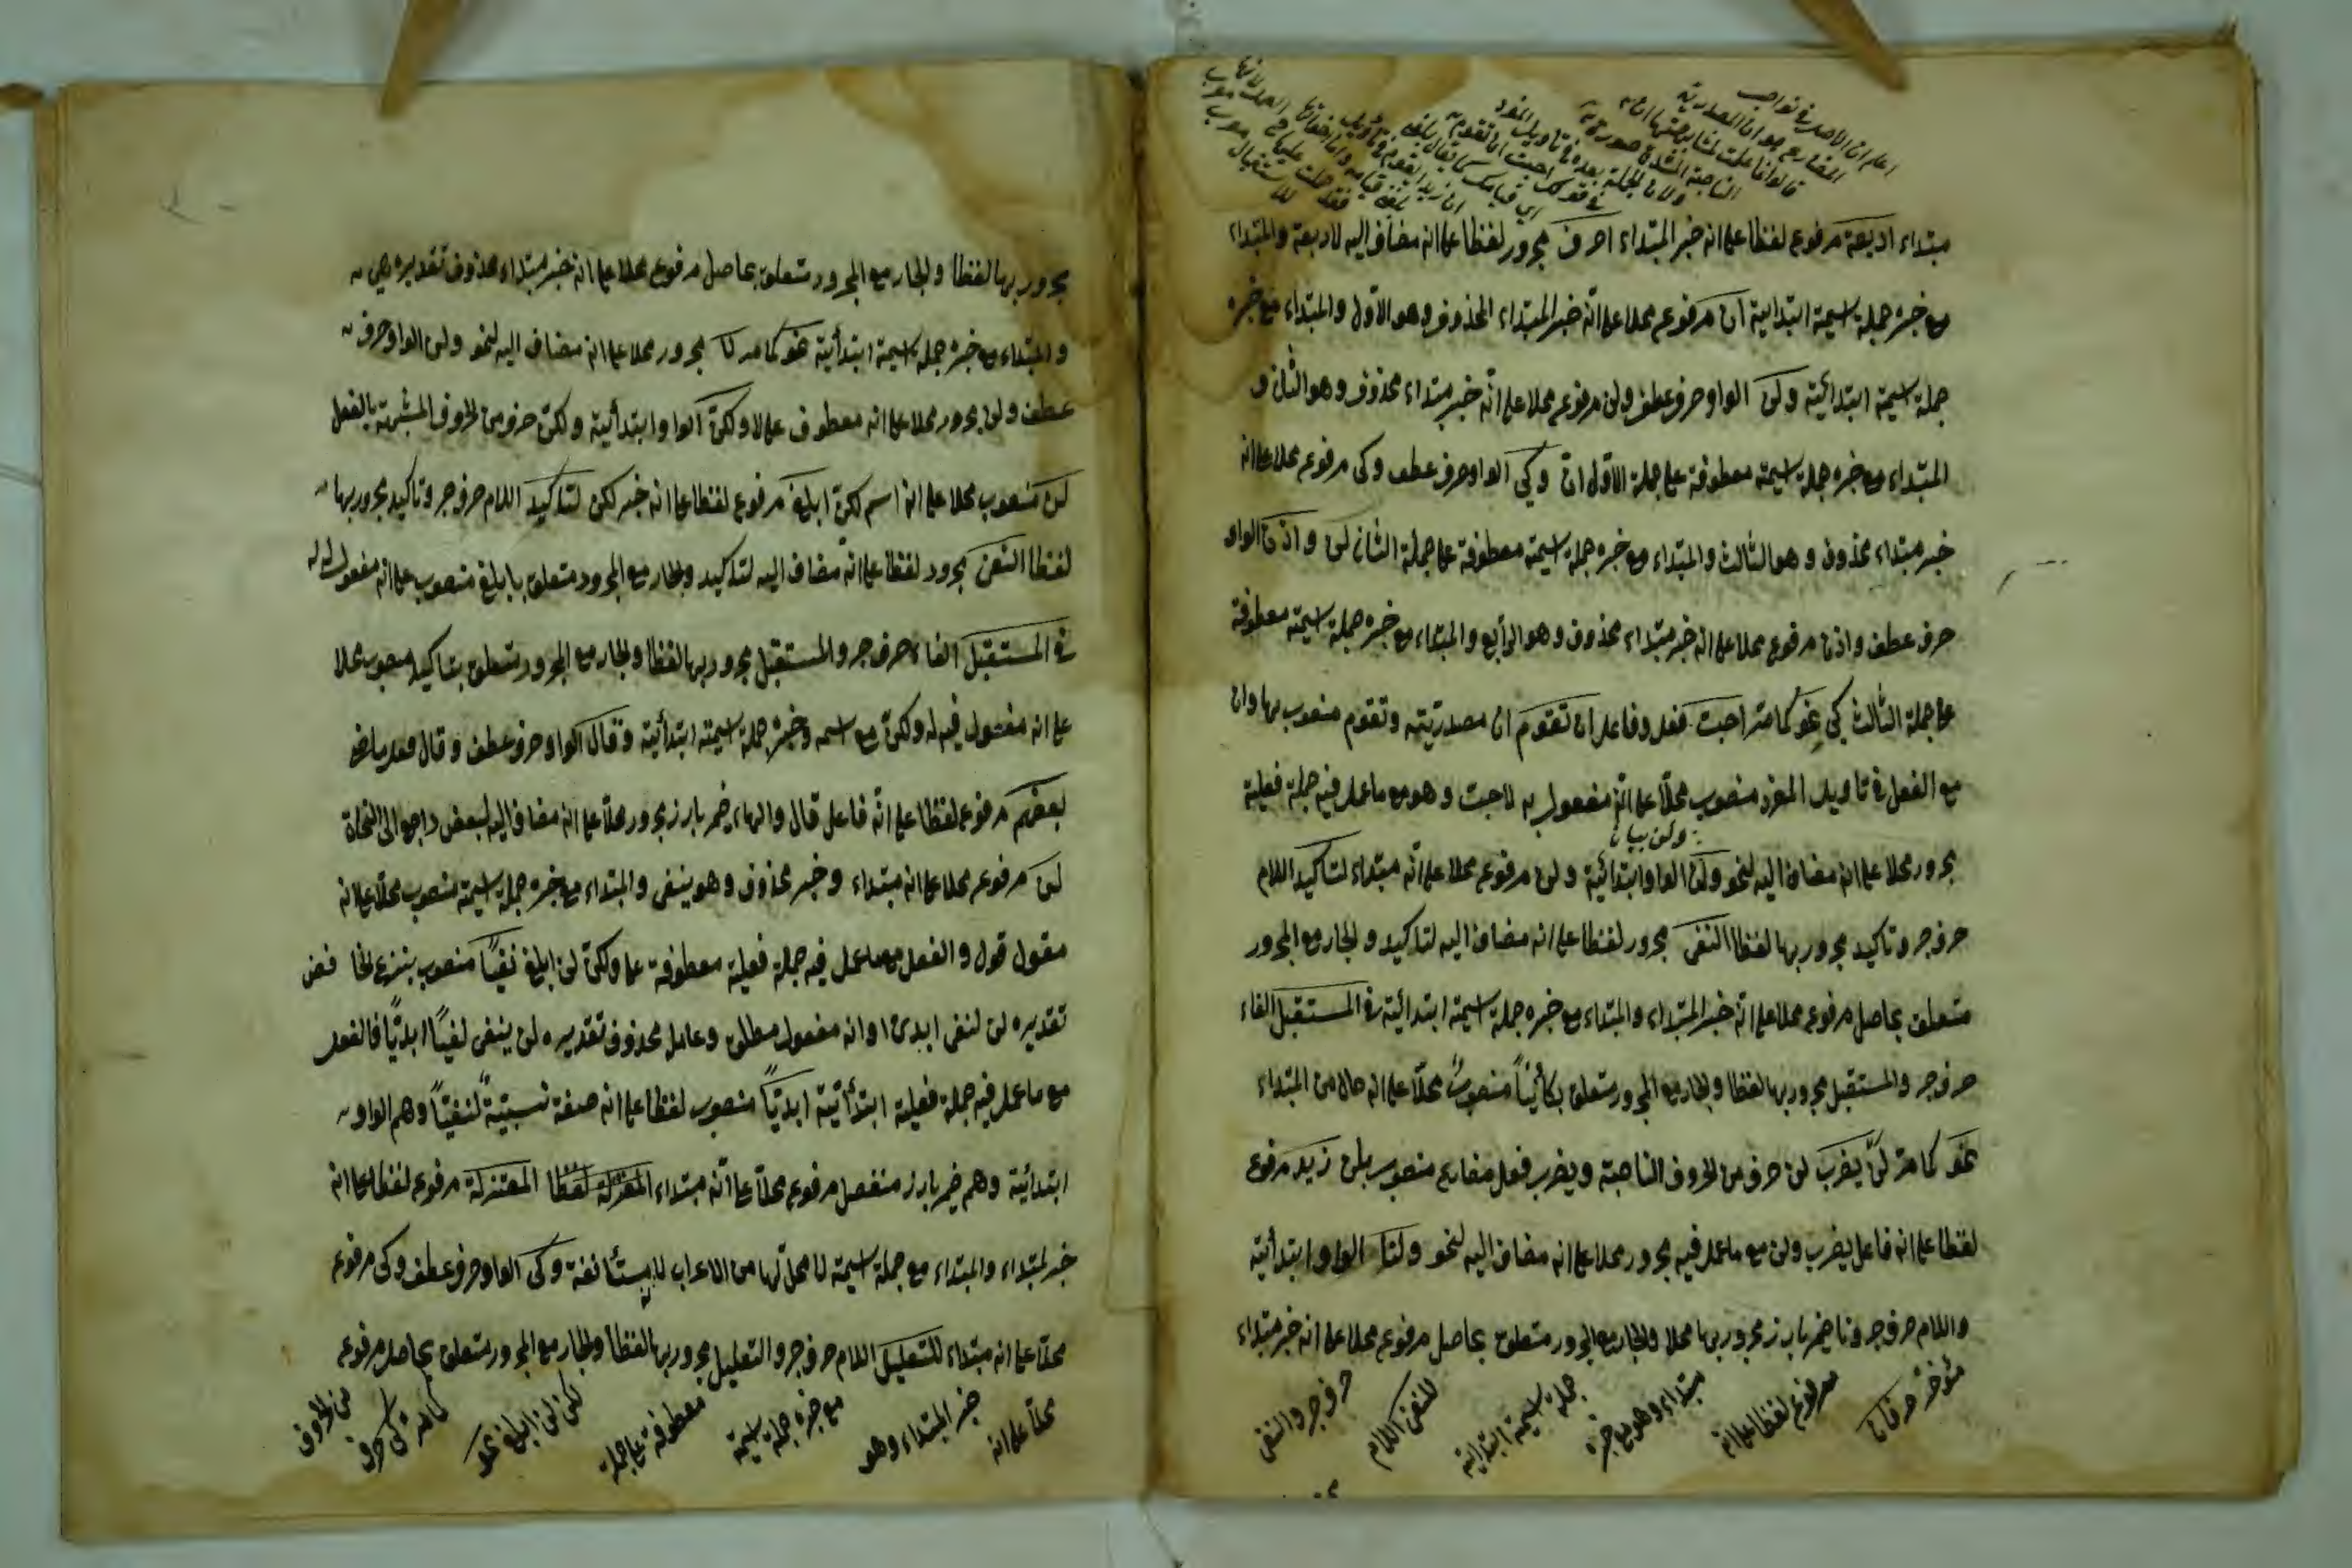 اعلم ان الاصل في نواصب
المضارع هو ان المصدرية
مبتداء اربعة مرفوع لفظا على انه خبر المبتداء احرف مجرور لفظا على انه مضاف اليه لاربعة والمبتداء
مع خبره جملة اسمية ابتدائية ان مرفوع محلا على انّه خبر المبتداء المحذوف وهو الاوّل والمبتداء مع خبره
جملة اسمية ابتدائية ولن الواو حرف عطف ولن مرفوع محلا على انّه خبر مبتداء محذوف وهو الثان و
المبتداء مع خبره جملة اسمية معطوفة على جملة الاوّل ان وكي الواو حرف عطف وكى مرفوع محلا على انه
خبر مبتداء محذوف وهو الثالث والمبتداء مع خبره جملة اسمية معطوفة على جملة الثان لن واذن الواو
حرف عطف واذن مرفوع محلا على انه خبر مبتداء محذوف وهو الرابع والمبتداء مع خبره جملة اسمية معطوفة
على جملة الثالث كي نحو كما مرّ احبت فعل وفاعل ان تقوم ان مصدريّته وتقوم منصوب بها وان
مع الفعل في تاويل المفرد منصوب محلّا على انّه مفعول به لاحبت وهو مع ما عمل فيه جملة فعلية
ولن بيان
مجرور محلا على انه مضاف اليه لنحو ولن الواو ابتدائية ولن مرفوع محلا على انّه مبتداء لتاكيد اللام
حرف جر وتاكيد مجرور بها لفظا النفى مجرور لفظا على انه مضاف اليه لتاكيد والجار مع المجرور
متعلق بحاصل مرفوع محلا على انّه خبر المبتداء والمبتداء مع خبره جملة اسمية ابتدائية في المستقبل الفاء
حرف جر والمستقبل مجرور بها لفظا والجار مع المجرور متعلق بكائنًا منصوبٌ محلّا على انه حال من المبتداء
نحو كما مرّ لن يضرب لن حرف من الحروف الناصبة ويضرب فعل مضارع منصوب بلن زيد مرفوع
لفظا على انه فاعل يضرب ولن مع ما عمل فيه مجرور محلا على انه مضاف اليه لنحو ولنا الواو ابتدائية
واللام حرف جر ونا ضمير بارز مجرور بها محلا والجار مع المجرور متعلق بحاصل مرفوع محلا على انه خبر مبتداء
مؤخر
مرفوع لفظا على انه
مبتداء وهو مع خبره
جملة اسمية ابتدائية
للنفى اللام
حرف جر والنفى
مجرور بها لفظا والجار مع المجرور متعلق بحاصل مرفوع محلا على انه خبر مبتداء محذوف تقديره هي
والمبتداء مع خبره جملة اسمية ابتدائية نحو كما مر لا مجرور محلا على انه مضاف اليه لنحو ولن الواو حرف
عطف ولن مجرور محلا على انه معطوف على لا ولكن الواو ابتدائية ولكن حرف من الحروف المشبهة بالفعل
لن منصوب محلا على انه اسم لكن ابلغ مرفوع لفظا على انه خبر لكن لتاكيد اللام حرف جر وتاكيد مجرور بها
لفظا النفى مجرور لفظا على انّه مضاف اليه لتاكيد والجار مع المجرور متعلق بابلغ منصوب على انه مفعول له
في المستقبل الفاء حرف جر والمستقبل مجرور بها لفظا والجار مع المجرور متعلق بتاكيد منصوب محلا
على انه مفعول فيه له ولكن مع اسمه وخبره جملة اسمية ابتدائية وقال الواو حرف عطف وقال فعل ماض
بعضهم مرفوع لفظا على انّه فاعل قال والهاء ضمير بارز مجرور محلّا على انه مضاف اليه لبعض راجع الى النحاة
لن مرفوع محلا على انه مبتداء وخبر محذوف وهو ينفى والمبتداء مع خبره جملة اسمية منصوب محلّا على انه
مقول قول والفعل مع ما عمل فيه جملة فعلية معطوفة على ولكن لن ابلغ نفيًا منصوب بنزع لخا فض
تقديره لن لنفى ابدى اوانه مفعول مطلق وعامل محذوف تقديره لن ينفى نفيًا ابديًّا فالفعل
مع ما عمل فيه جملة فعلية ابتدائية ابديًّا منصوب لفظا على انه صفة نسبيّةٌ لنفيًا وهم الواو
ابتدائية وهم ضمير بارز منفصل مرفوع محلّا على انّه مبتداء المعتزلة لفظا المعتزلة مرفوع لفظا على انه
خبر لمبتداء والمبتداء مع جملة اسمية لا محل لها من الاعراب لانها مستأنفة وكى الواو حرف عطف وكى مرفوع
محلّا على انه مبتداء للتعليل اللام حرف جر والتعليل مجرور بها لفظا والجار مع المجرور متعلق بحاصل مرفوع
محلّا على انه
خبر المبتداء وهو
مع خبره جملة اسمية
معطوفة على جملة
لكن لن ابلغ نحو
كما مر كى حرف
من الحروف